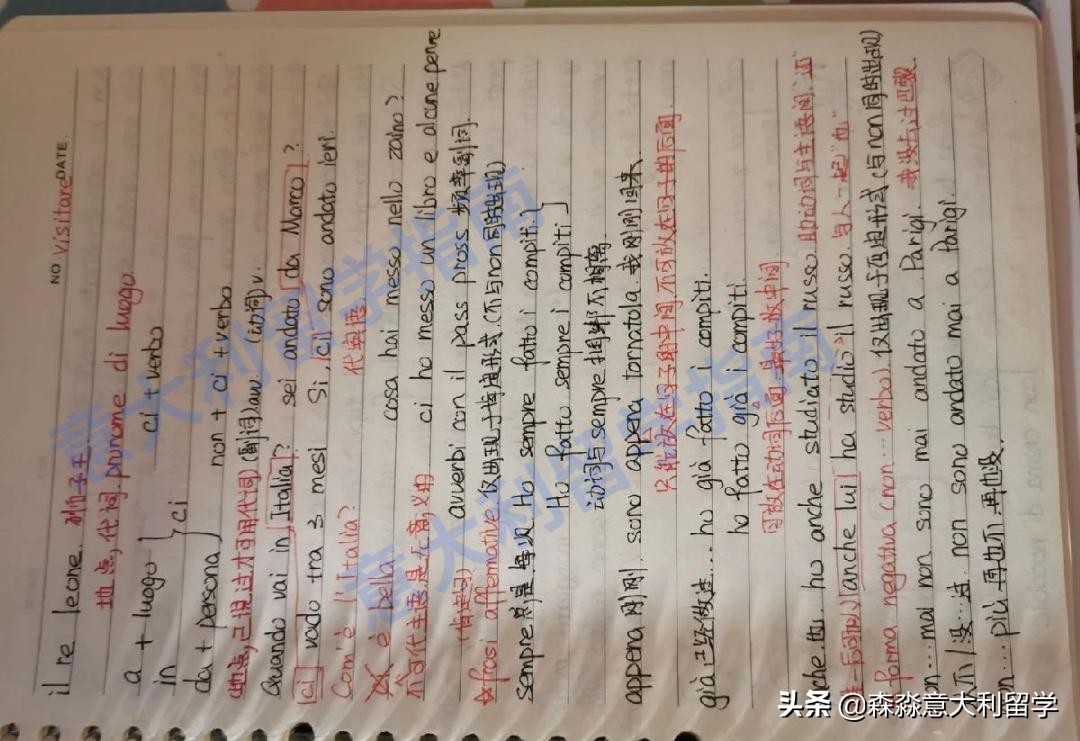 NO Visitare DATE
il re leone. 狮子王.
地点,代词 pronome di luogo.
a + luogo
in
da + persona
ci
ci + verbo
non + ci + verbo
地点,已说过才可用代词 (副词)avv. (动词)v.
Quando vai in Italia? sei andato da Marco?
ci vado tra 3 mesi Sì, ci sono andato ieri.
Com'è l'Italia? 代宾语
è bella cosa hai messo nello zaino?
不可代主语 ci ho messo un libro e alcune penne
(肯定句) avverbi con il pass pross 频率副词.
frasi affermative 仅出现于肯定形式 (不与non同时出现)
sempre 总是 Ho sempre fatto i compiti.
Ho fatto sempre i compiti
动词与sempre 不相离
appena 刚刚. sono appena tornatola. 我刚刚回来
只能放在句子中间,不可放在句子的后面
già 已经做过... ho già fatto i compiti.
ho fatto già i compiti.
可放在动词后面 最好放中间
che.也. ho anche studiato il russo. 助动词与主语间.
anche lui ha studiato il russo. 与人一起"也"
forma negativa (non... verbo). 仅出现于否定形式 (与non同时出现)
on...mai non sono mai andato a Parigi. 我没去过巴黎.
不/没...过. non sono andato mai a Parigi.
n....più 再也不 再也没.
意大利留学指南
意大利留学指南
头条 @森淼意大利留学